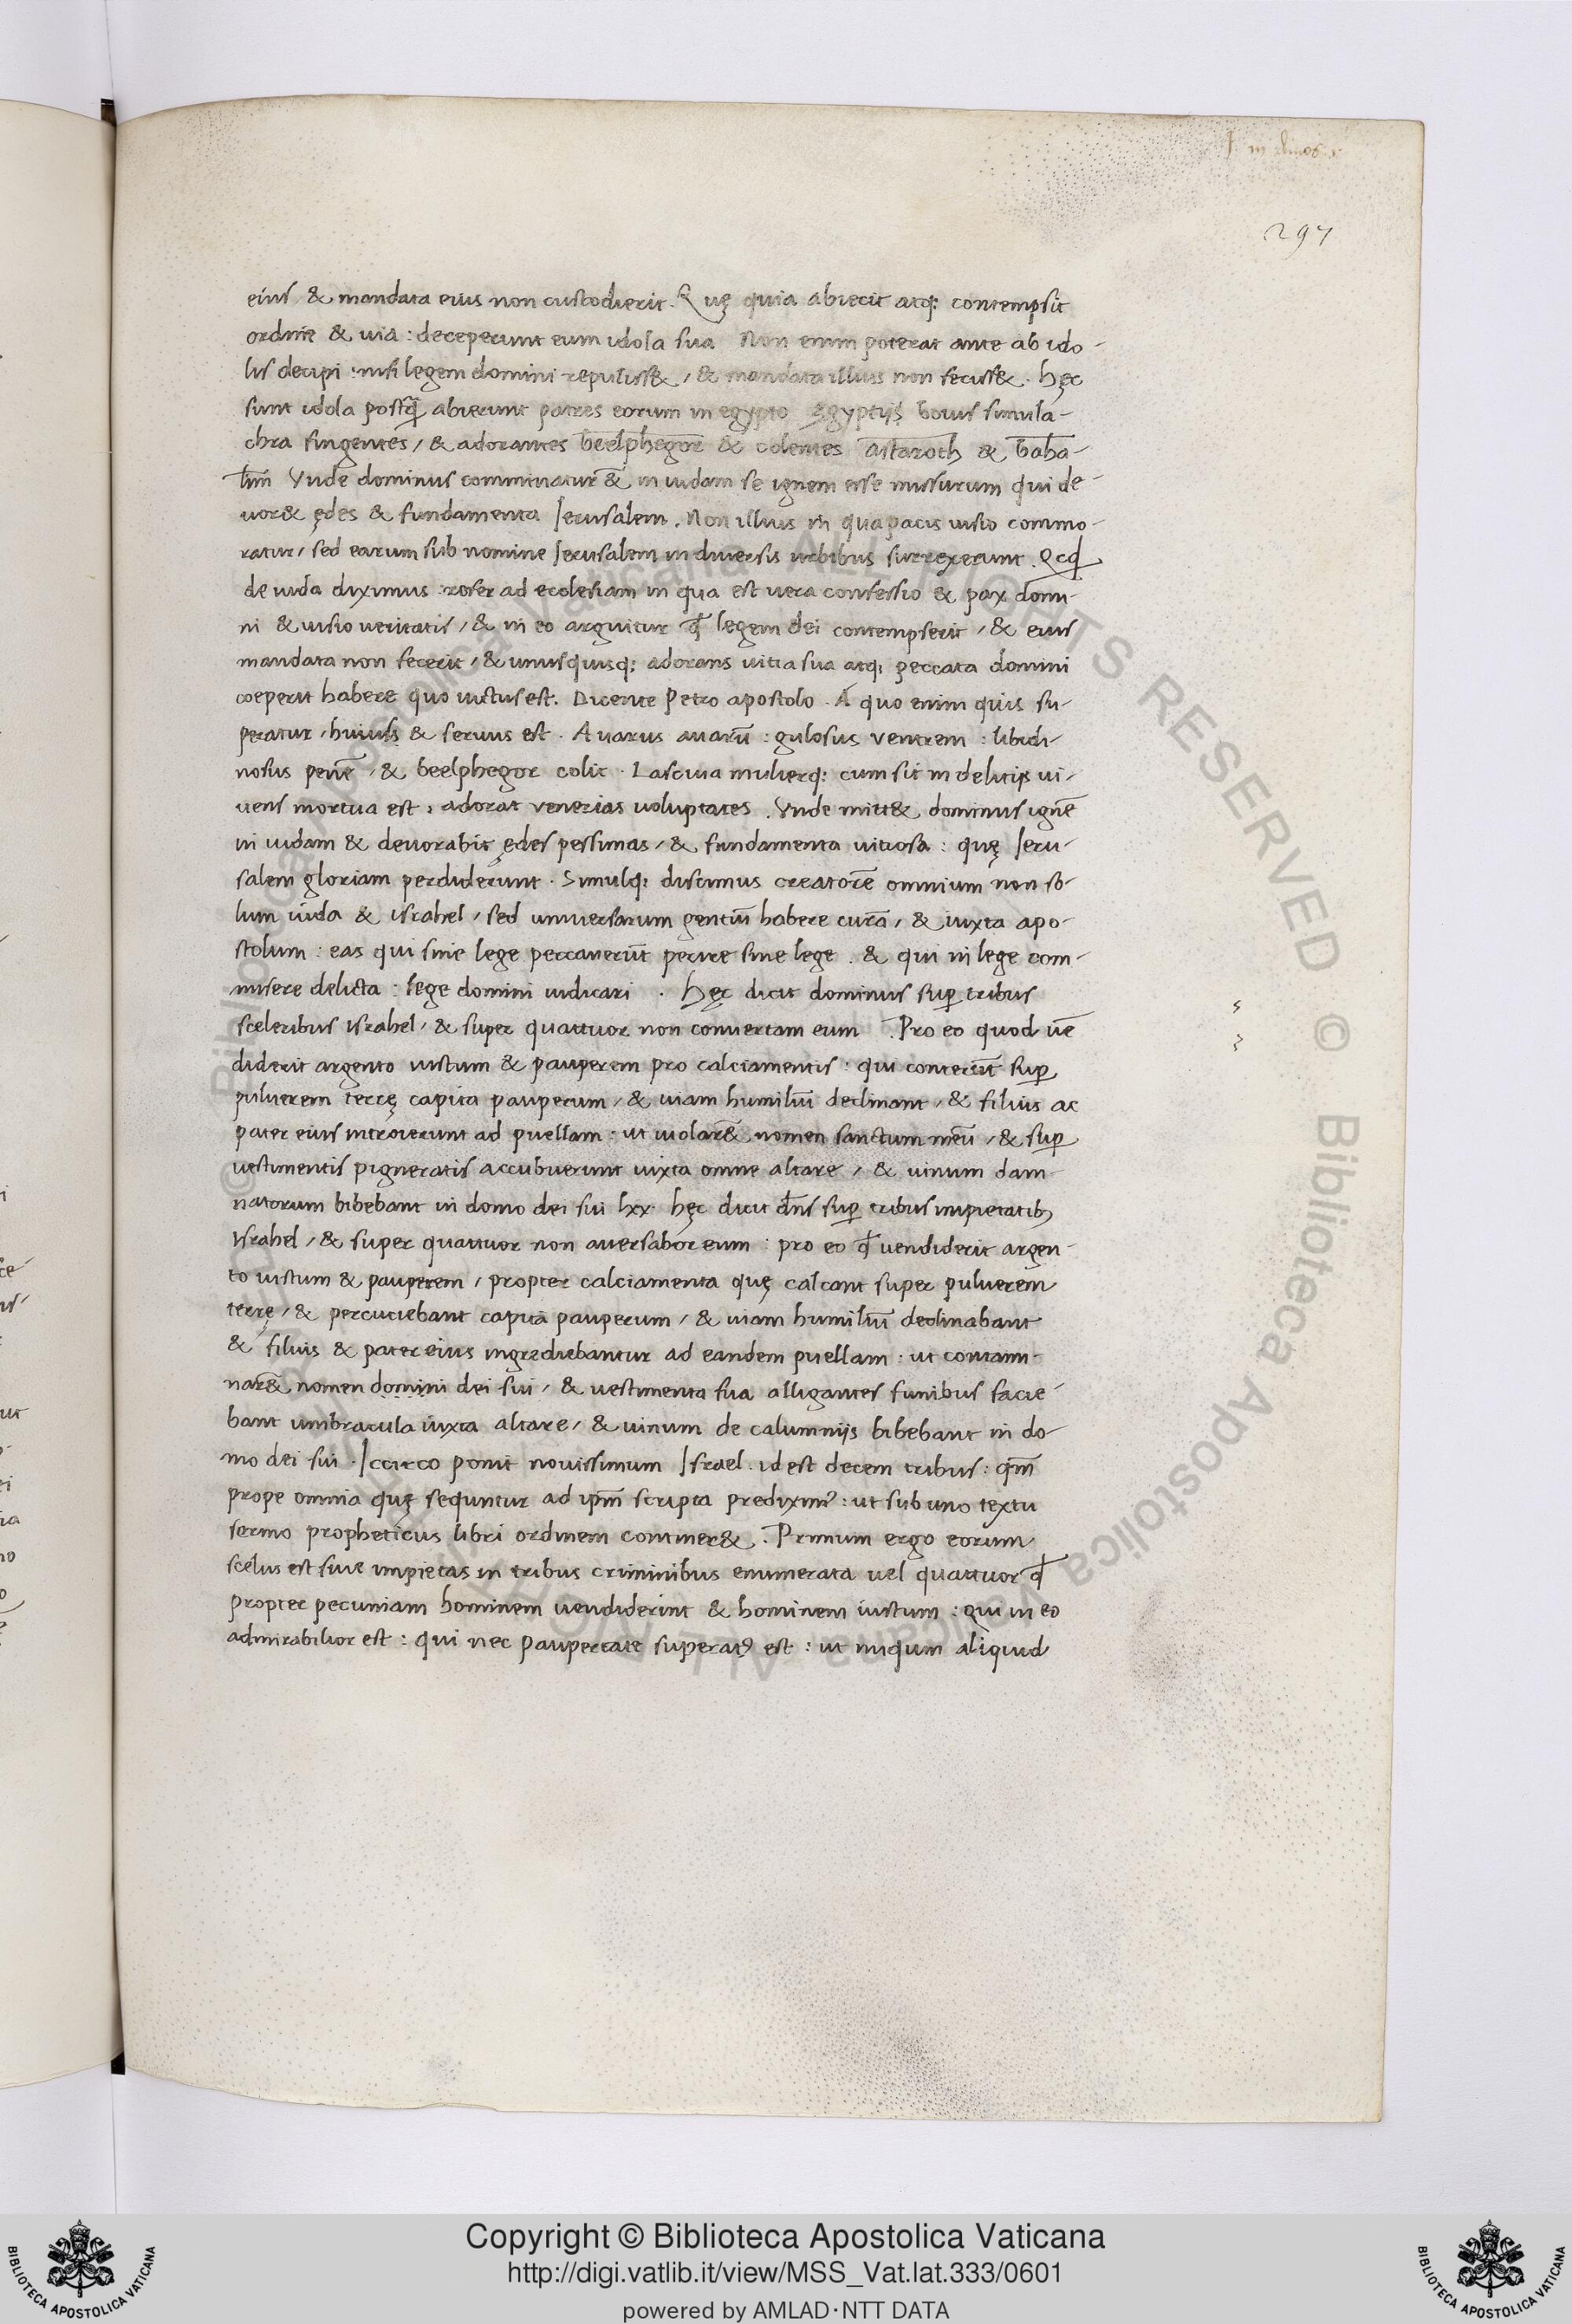 in Amos
297
eius & mandata eius non custodierit. Quę quia abiecit atq; contempsit
ordine & uia : deceperunt eum idola sua Non enim poterat ante ab ido-
lis decipi : nisi legem domini repulisset, & mandata illius non fecisset. hęc
sunt idola postq̄ abierunt patres eorum in egypto egyptijs bouis simula-
chra fingentes, & adorantes beelphegor & colentes astaroth & baha-
lim Vnde dominus comminatur & in iudam se ignem esse missurum qui de-
uoret ędes & fundamenta Ierusalem. Non illius in qua pacis uisio commo-
ratur, sed earum sub nomine Ierusalem in diuersis urbibus surrexerunt. Qcqd
de iuda diximus refer ad ecclesiam in qua est uera confessio & pax domi-
ni & uisio ueritatis, & in eo arguitur qđ legem dei contempserit, & eius
mandata non fecerit, & unusquisq; adorans uitia sua atq; peccata domini
coeperit habere quo uictus est. Dicente Petro apostolo. A quo enim quis su-
peratur, huius & seruus est. Auarus auarū : gulosus ventrem : libidi-
nosus penē, & beelphegor colit. Lasciua mulierq; cum sit in delitijs ui-
uens mortua est, adorat venerias uoluptates. Vnde mittet dominus ignē
in iudam & deuorabit ędes pessimas, & fundamenta uitiosa : quę Ieru-
salem gloriam perdiderunt. Simulq; discimus creatorē omnium non so-
lum iuda & israhel, sed uniuersarum gentiū habere curā, & iuxta apo-
stolum : eas qui sine lege peccauerūt perire sine lege. & qui in lege com-
misere delicta : lege domini iudicari. Hęc dicit dominus sup̱ tribus
sceleribus israhel, & super quattuor non conuertam eum. Pro eo quod uē
diderit argento iustum & pauperem pro calciamentis : qui conterūt sup̱
puluerem terrę capita pauperum, & uiam humiliū declinant, & filius ac
pater eius introierunt ad puellam : ut uiolaret nomen sanctum meū, & sup̱
uestimentis pigneratis accubuerunt iuxta omne altare, & uinum dam-
natorum bibebant in domo dei sui lxx. hęc dicit dn̄s sup̱ tribus impietatib;
israhel, & super quattuor non auersabor eum : pro eo qđ uendiderit argen-
to iustum & pauperem, propter calciamenta quę calcant super puluerem
terrę, & percutiebant capita pauperum, & uiam humiliū declinabant
& filius & pater eius ingrediebantur ad eandem puellam : ut contami-
naret nomen domini dei sui, & uestimenta sua alligantes funibus facie-
bant umbracula iuxta altare, & uinum de calumnijs bibebant in do-
mo dei sui. Iccirco ponit nouissimum Israel. id est decem tribus : qm̄
prope omnia quę sequntur ad ipm̄ scripta predixim9 : ut sub uno textu
sermo propheticus libri ordinem contineret. Primum ergo eorum
scelus est siue impietas in tribus criminibus enumerata uel quattuor qđ
propter pecuniam hominem uendiderint & hominem iustum : qui in eo
admirabilior est : qui nec paupertate superat9 est : ut iniqum aliquid
Copyright © Biblioteca Apostolica Vaticana
http://digi.vatlib.it/view/MSS_Vat.lat.333/0601
powered by AMLAD·NTT DATA